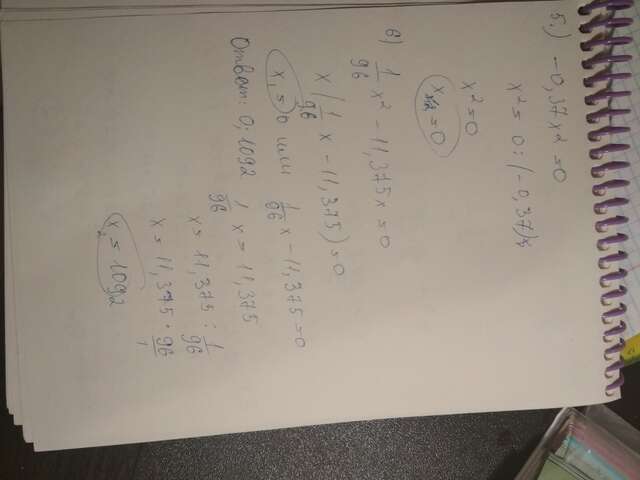 5.) -0,37x²=0
x² = 0 : (-0,37)
x²=0
x₁,₂=0
6) 1/96 x² - 11,375x = 0
x(1/96 x - 11,375) = 0
x₁ = 0 или 1/96 x - 11,375 = 0
1/96 x = 11,375
x = 11,375 : 1/96
x = 11,375 · 96/1
x₂ = 1092
Ответ: 0; 1092